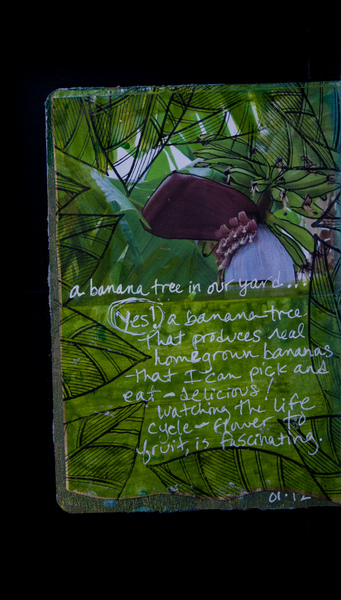 a banana tree in our yard...
Yes! a banana tree
that produces real
homegrown bananas
that I can pick and
eat - delicious!
watching the life
cycle - flower to
fruit, is fascinating.
01.12